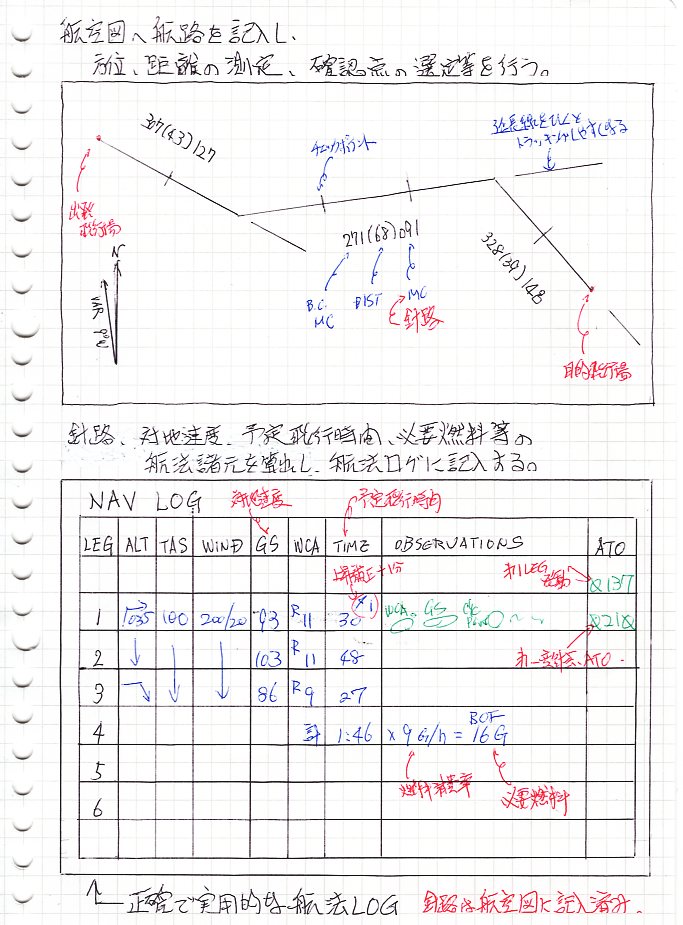 航空図へ航路を記入し、
方位、距離の測定、確認点の選定等を行う。
307(43)127
チェックポイント
延長線をひくと
トラッキングしやすくなる
出発
飛行場
N
VAR 9°W
271(68)091
B.C.
MC
DIST
MC
針路
328(39)148
目的飛行場
針路、対地速度、予定飛行時間、必要燃料等の
航法諸元を算出し、航法ログに記入する。
NAV LOG
対地速度
予定飛行時間
LEG ALT TAS WIND GS WCA TIME OBSERVATIONS ATO
上昇補正+1分
オ1LEG
0137
1 1035 100 200/20 93 R11 30 (*1) WCA GS 0210
2 103 R11 48
ATO.
3 86 R9 27
4 計 1:46 × 9 G/h = 16G
BOF
5
燃料消費率
必要燃料
6
正確で実用的な航法LOG
針路は航空図に記入済み.